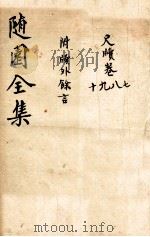 尺牘卷七八九十
附牘外餘言
隨園全集